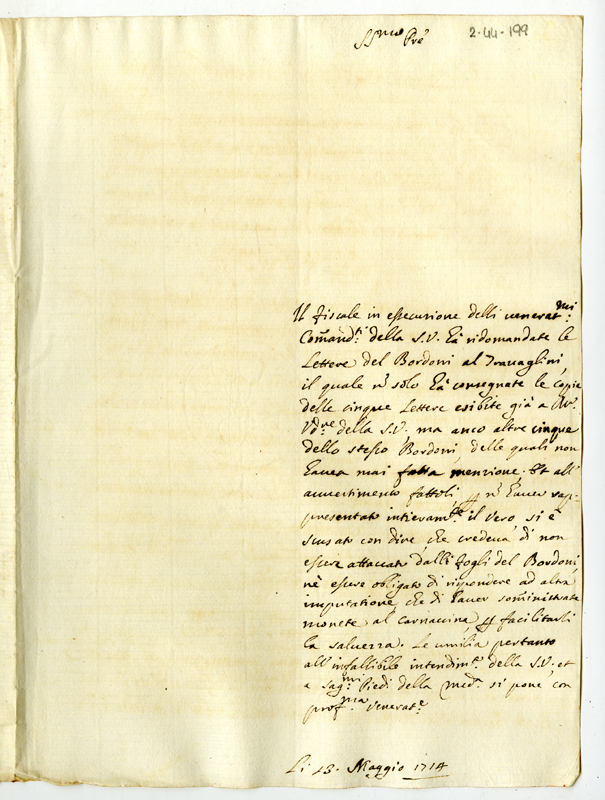 SS.mo Pre
2-44-199
Il fiscale in essecuzione delli venerat.mi
Comand.ti della S.V. hà ridomandate le
Lettere del Bordoni al Travaglini,
il quale nõ solo hà consegnate le copie
delle cinque Lettere esibite già a
della S.V. ma anco altre cinque
dello stesso Bordoni, delle quali non
havea mai fatta menzione. Et all'
avvertimento fattoli p nõ haver rap-
presentato intieram.te il vero, si è
scusato con dire, che credeva di non
essere attaccato dalli fogli del Bordoni
nè essere obligato di rispondere ad altra
imputazione che di haver somministrate
monete al Carnaccina p facilitarli
la salvezza. Le umilia pertanto
all'infallibile intendim.to della S.V. et
a sag.mi Piedi della med.ma si pone con
prof.ma venerat.e
Li 13. Maggio 1714